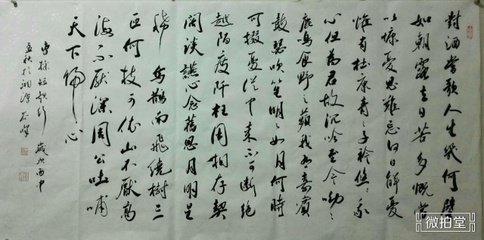 對酒當歌人生幾何譬
如朝露去日苦多慨當
以慷憂思難忘何以解憂
惟有杜康青々子衿悠々我
心但為君故沉吟至今呦々
鹿鳴食野之蘋我有嘉賓
鼓瑟吹笙明々如月何時
可掇憂從中來不可斷絕
越陌度阡枉用相存契
闊談讌心念舊恩月明星
稀烏鵲南飛繞樹三
匝何枝可依山不厭高
海不厭深周公吐哺
天下歸心
曹操短歌行歲次丙申
微拍堂